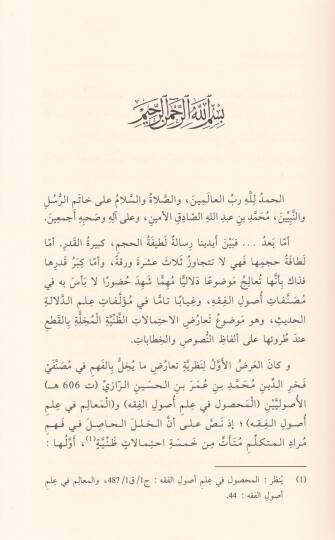 بِسْمِ اللَّهِ الرَّحْمَٰنِ الرَّحِيمِ
الحمدُ لِلَّهِ ربِّ العالَمِينَ، والصَّلاةُ والسَّلامُ على خاتَمِ الرُّسُلِ
والنَّبِيِّينَ، مُحَمَّدِ بنِ عبدِ اللهِ الصّادِقِ الأمينِ، وعلى آلِهِ وصَحبِهِ أجمَعِينَ.
أمّا بَعدُ ... فبَيْنَ أيدينا رِسالةٌ لَطيفَةُ الحجمِ، كبيرَةُ القَدرِ. أمّا
لَطافَةُ حجمِها فَهي لا تتجاوزُ ثَلاثَ عشرةَ ورقةً، وأمّا كِبَرُ قَدرِها
فذاك بأنَّها تُعالِجُ مَوضوعًا دَلاليًّا مُهِمًّا شَهِدَ حُضورًا لا بَأسَ به في
مُصَنَّفاتِ أُصولِ الفِقهِ، وغِيابًا تامًّا في مُؤلَّفاتِ عِلمِ الدَّلالةِ
الحديثِ، وهو مَوضوعُ تَعارُضِ الاحتِمالاتِ الظَّنِّيَّةِ المُخِلَّةِ بِالقَطعِ
عندَ طُروئها على ألفاظِ النُّصوصِ والخِطاباتِ.
و كانَ العَرضُ الأوَّلُ لِنَظَرِيَّةِ تعارُضِ ما يُخِلُّ بِالفَهمِ في مصَنَّفَيْ
فَخرِ الدِّينِ مُحَمَّدِ بنِ عُمَرَ بنِ الحسَينِ الرّازيِّ (ت 606 هـ)
الأُصولِيَّيْنِ (المَحصول في عِلمِ أصولِ الفقه) و(المَعالِم في عِلمِ
أُصولِ الفِقهِ) ؛ إذ نَصَّ على أنَّ الخلَلَ الحاصِلَ في فَهمِ
مُرادِ المتكلِّمِ مُتَأتٍّ من خَمسةِ احتِمالاتٍ ظَنِّيَّةٍ(1)، أوَّلُها :
(1) يُنظَر : المحصول في عِلمِ أصولِ الفقه : ج1/ق487/1، والمعالِم في عِلمِ
أصولِ الفقه : 44.